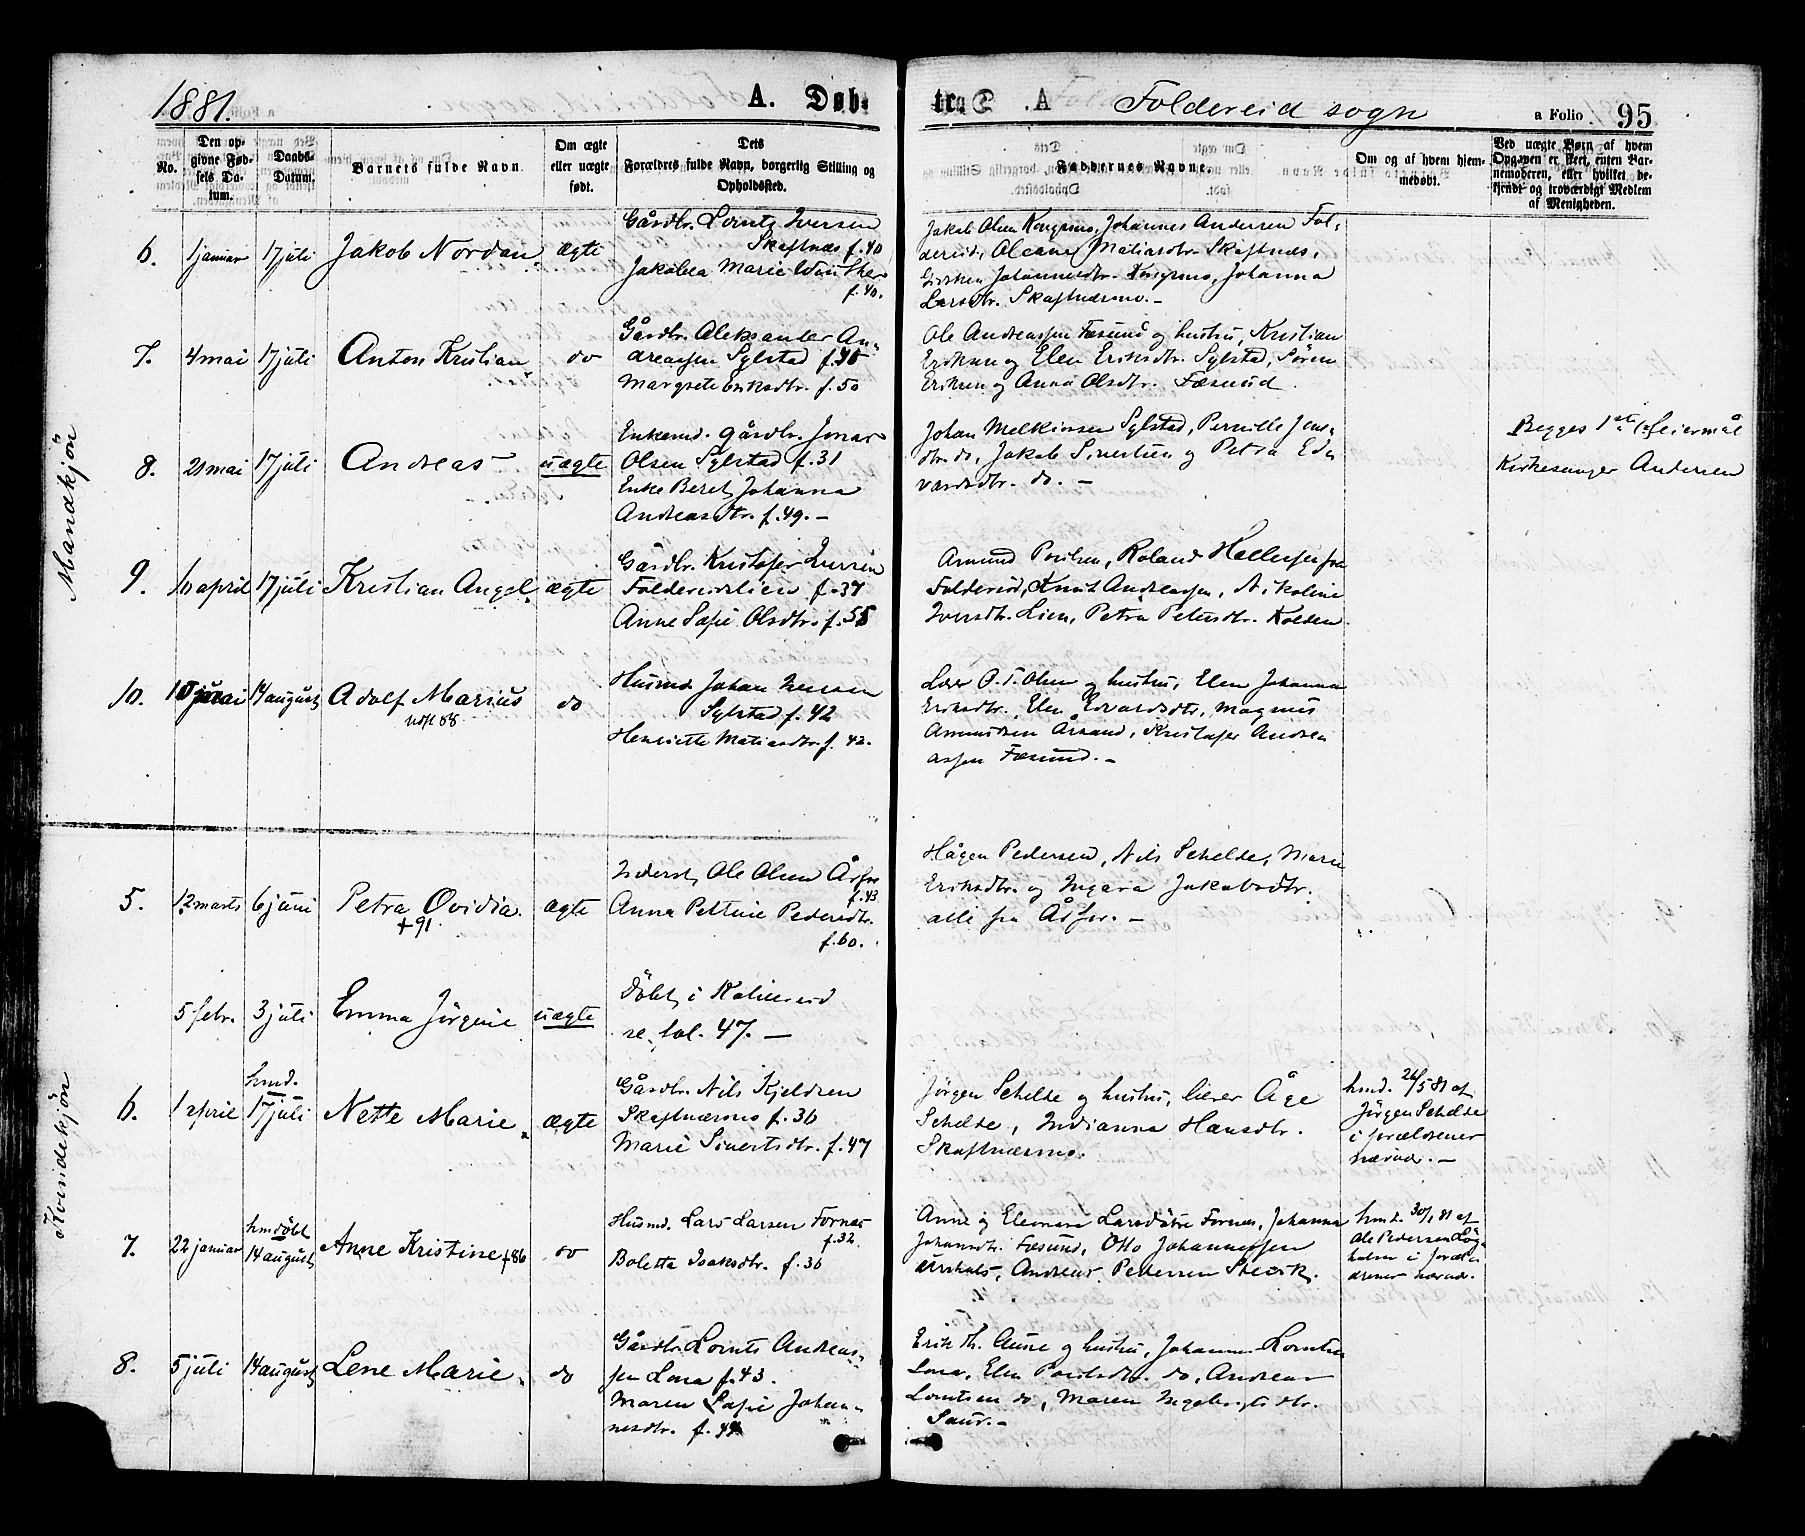 1881.
A. Døb-
te. A
Foldereid sogn
a Folio 95
No.
Den op-
givne Fød-
sels Da-
tum.
Daabs-
Datum.
Barnets fulde Navn.
Om ægte
eller uægte
født.
Dets
Forældres fulde Navn, borgerlig Stilling og
Opholdssted.
Faddernes Navne.
Om og af hvem hjem-
medøbt.
Ved uægte Børn af hvem
Opgaven er skeet, enten Bar-
nemoderen, eller hvilket be-
kjendt og troværdigt Medlem
af Menigheden.
Mandkjøn
6. 1 januar 17 juli Jakob Nordan ægte
Gårdbr. Lorntz Iversen
Skaftnæs f. 40
Jakobea Marie Winther
f. 40.
Jakob Olsen Kongsmo, Johannes Andersen Fol-
dereid, Alcana Matiasdtr. Skaftnæs,
Johannesdtr. Kongsmo, Johanna
Larsdtr. Skaftnæsmo. -
7. 4 mai 17 juli Anton Kristian do
Gårdbr. Aleksander An-
dreassen Sylstad f. 45
Margrete Eriksdtr. f. 50
Ole Andreassen Fæsund og hustru, Kristian
Eriksen og Elen Eriksdtr. Sylstad, Søren
Eriksen og Anna Olsdtr. Fæsund.
8. 21 mai 17 juli Andreas uægte
Enkemd. gårdbr. Jonas
Olsen Sylstad f. 31
Enke Beret Johanna
Andreasdtr. f. 49. -
Johan Melkiorsen Sylstad, Pernille Jens-
dtr. do, Jakob Sivertsen og Petra Ed-
vardsdtr. do. -
Begges 1ste leiermål
Kirkesanger Andersen
9. 10 april 17 juli Kristian Angel ægte
Gårdbr. Kristofer Iversen
Foldereidslien f. 37
Anne Sofie Olsdtr. f. 55
Amund Poulsen, Roland Hallesen fra
Foldereid, Knut Andreassen, Nikoline
Iversdtr. Lien, Petra Petersdtr. Kolsen
10. 10 mai 14 august Adolf Marius do
Husmd. Johan Iversen
Sylstad f. 42
Henriette Matiasdtr. f. 42.
Lærer O. T. Olsen og hustru, Elen Johanna
Eriksdtr., Elen Edvardsdtr., Magnus
Amundsen Årsand, Kristofer Andre-
assen Fæsund. -
Kvindekjøn
5. 12 marts 6 juni Petra Ovidia. ægte
+91.
Inderst Ole Olsen Årfor
f. 43
Anna Pettrine Pedersdtr.
f. 60.
Hågen Pedersen, Nils Schelde, Marie
Eriksdtr. og Ingara Jakobsdtr.
alle fra Årfor. -
5 febr. 3 juli Emma Jörgine uægte
Döbt i Kolvereid
se fol. 47. -
hmd.
6. 1 april 17 juli Nette Marie ægte
Gårdbr. Nils Kjeldsen
Skaftnæsmo f. 36
Marie Sivertsdtr. f. 47
Jörgen Schelde og hustru, lærer Åge
Schelde, Indianna Hansdtr.
Skaftnæsmo.
hmd. 26/5 81 af
Jörgen Schelde
i forældrenes
nærvær. -
hmdøbt
7. 22 januar 14 august Anne Kristine +86 do
Husmd. Lars Larsen Fornes
f. 32
Boletta Isaksdtr. f. 36
Anne og Eleonora Larsdötre Fornes, Johanna
Johansdtr. Fæsund, Otto Johannessen
Andreas Pedersen
hmd. 30/1 81 af
Ole Pedersen
i foræl-
drenes nærvær.
8. 5 juli 14 august Lene Marie do
Gårdbr. Lornts Andreas-
sen Lona f. 43.
Maren Sofie Johan-
nesdtr. f. 44
Erik Th. Aune og hustru, Johannes Lorntsen
Lona, Elen Poulsdtr. do, Andreas
Lorntsen do, Maren Ingebrigtsdtr.
Saur. -